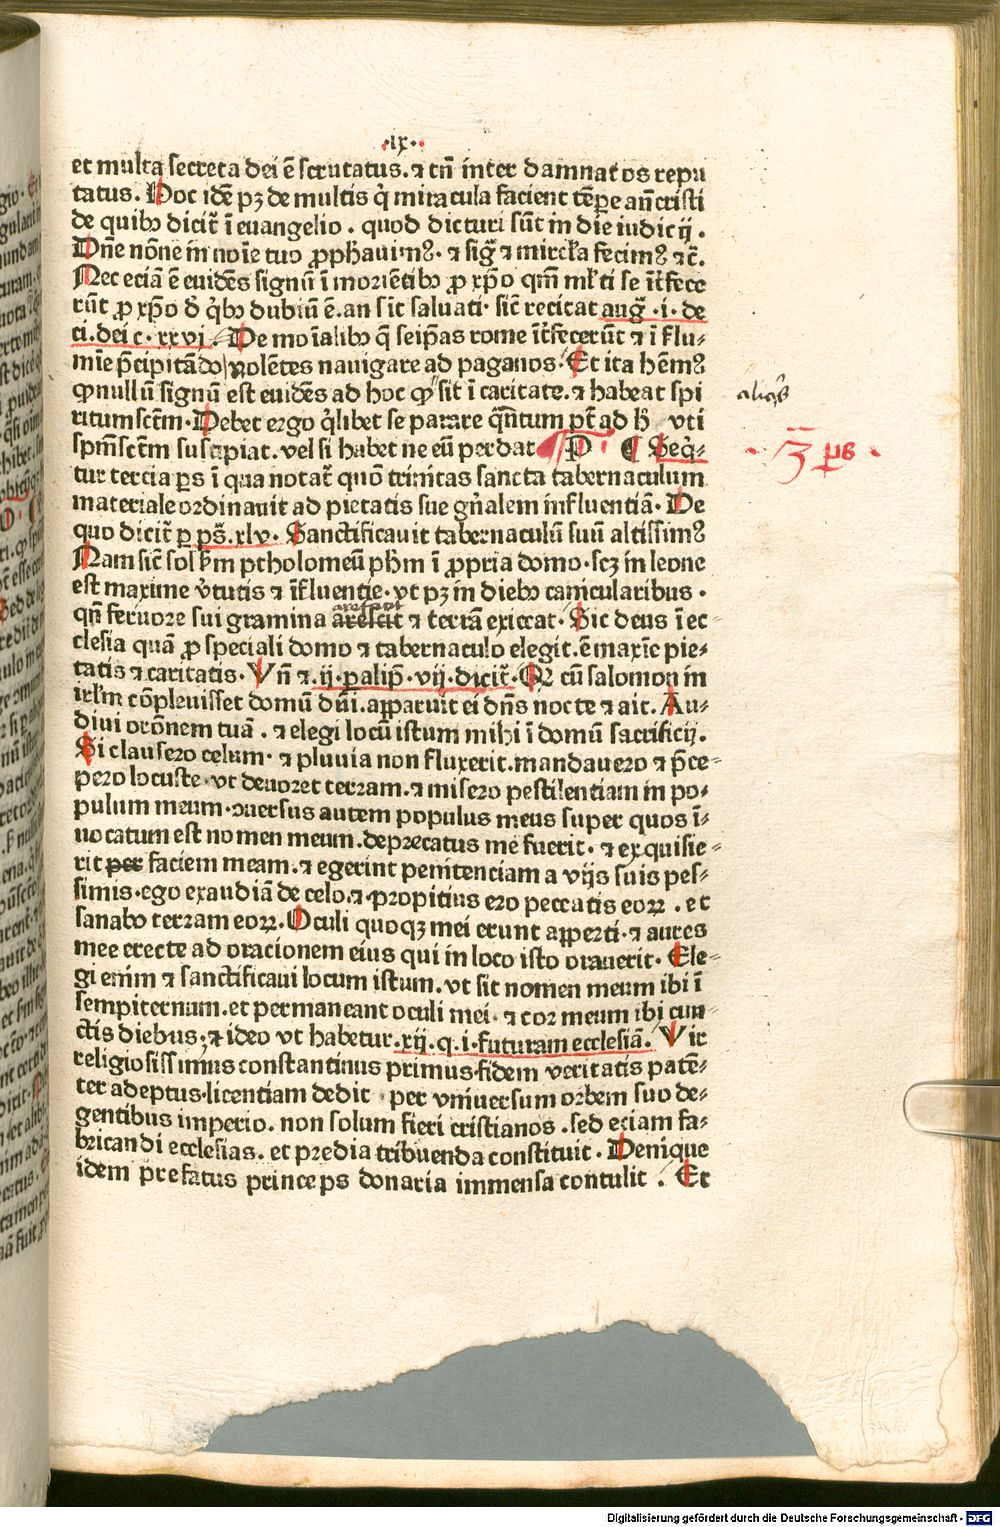 ·ix·
et multa secreta dei ē scrutatus. ⁊ tn̄ inter damnatos repu
tatus. Hoc idē pꝫ de multis q̄ miracula facient tēꝑe ann̄cristi
de quibꝰ dicit̄ ī euangelio . quod dicturi sūt in die iudicij .
Dn̄e nōne in noīe tuo ꝓph̄auimꝰ. ⁊ siḡ ⁊ mirc̄ła fecimꝰ ⁊c̄.
Nec eciā ē euidēs signū ī moriētibꝰ ꝓ xp̄o qm̄ ml̄ti se īt̄fece
rūt ꝓ xp̄o d̄ q̇bꝰ dubiū ē. an sīt saluati· sic̄ recitat auḡ ·i· de
ci. dei c· xxvi· De moīalibꝰ q̄ seip̄as rome īt̄fecerūt ⁊ ī flu⸗
mīe p̄cipitādo volētes nauigare ad paganos· Et ita hēmꝰ
ꝙ nullū signū est euidēs ad hoc ꝙ sit ī caritate. ⁊ habeat spi
ritum sctm̄· Debet ergo q̇libet se parare q̄ntum pt̄ ad h̄ vti
sp̄m sctm̄ suscipiat. vel si habet ne eū perdat ¶ Seq̄⸗
aliq̄s
·3 ꝑs·
tur tercia ꝑs ī qua notat̄ quō trinitas sancta tabernaculum
materiale ordinauit ad pietatis sue gn̄alem influentiā· De
quo dicit̄ ꝑ pš. xlv· Sanctificauit tabernaculū suū altissimꝰ
Nam sic̄ sol k̄m ptholomeū ph̄m ī ꝓpria domo· scꝫ in leone
est maxime v̄tutis ⁊ īfluentie· vt pꝫ in diebꝰ canicularibus ·
arefient
qn̄ feruore sui gramina arescit ⁊ terrā exiccat· Sic deus ī ec⸗
clesia quā ꝓ speciali domo ⁊ tabernaculo elegit. ē maxīe pie⸗
tatis ⁊ caritatis· Vn̄ ⁊ . ij· ꝑalip̄· vij· dicit̄· Q cū salomon in
irl̄m cōpleuisset domū dn̄i. apparuit ei dn̄s nocte ⁊ ait. Au⸗
diui orōnem tuā . ⁊ elegi locū istum mihi ī domū sacrificij.
Si clausero celum· ⁊ pluuia non fluxerit. mandauero ⁊ p̄ce⸗
pero locuste· vt deuoret terram. ⁊ misero pestilentiam in po⸗
pulum meum· ↄuersus autem populus meus super quos ī⸗
uocatum est nomen meum. deprecatus me fuerit. ⁊ exquisie⸗
rit per faciem meam. ⁊ egerint penitenciam a vijs suis pes⸗
simis· ego exaudiā de celo. ⁊ propitius ero peccatis eoꝝ . et
sanabo terram eoꝝ. Oculi quoqꝫ mei erunt apperti· ⁊ aures
mee erecte ad oracionem eius qui in loco isto orauerit· Ele⸗
gi enim ⁊ sanctificaui locum istum. vt sit nomen meum ibi ī
sempiternum. et permaneant oculi mei· ⁊ cor meum ibi cun
ctis diebus; ⁊ ideo vt habetur. xij. q. i. futuram ecclesiā. Vir
religiosissimus constantinus primus· fidem veritatis patē⸗
ter adeptus· licentiam dedit · per vniuersum orbem suo de⸗
gentibus imperio. non solum fieri cristianos . sed eciam fa⸗
bricandi ecclesias. et predia tribuenda constituit · Denique
idem prefatus princeps donaria immensa contulit . Et
Digitalisierung gefördert durch die Deutsche Forschungsgemeinschaft - DFG